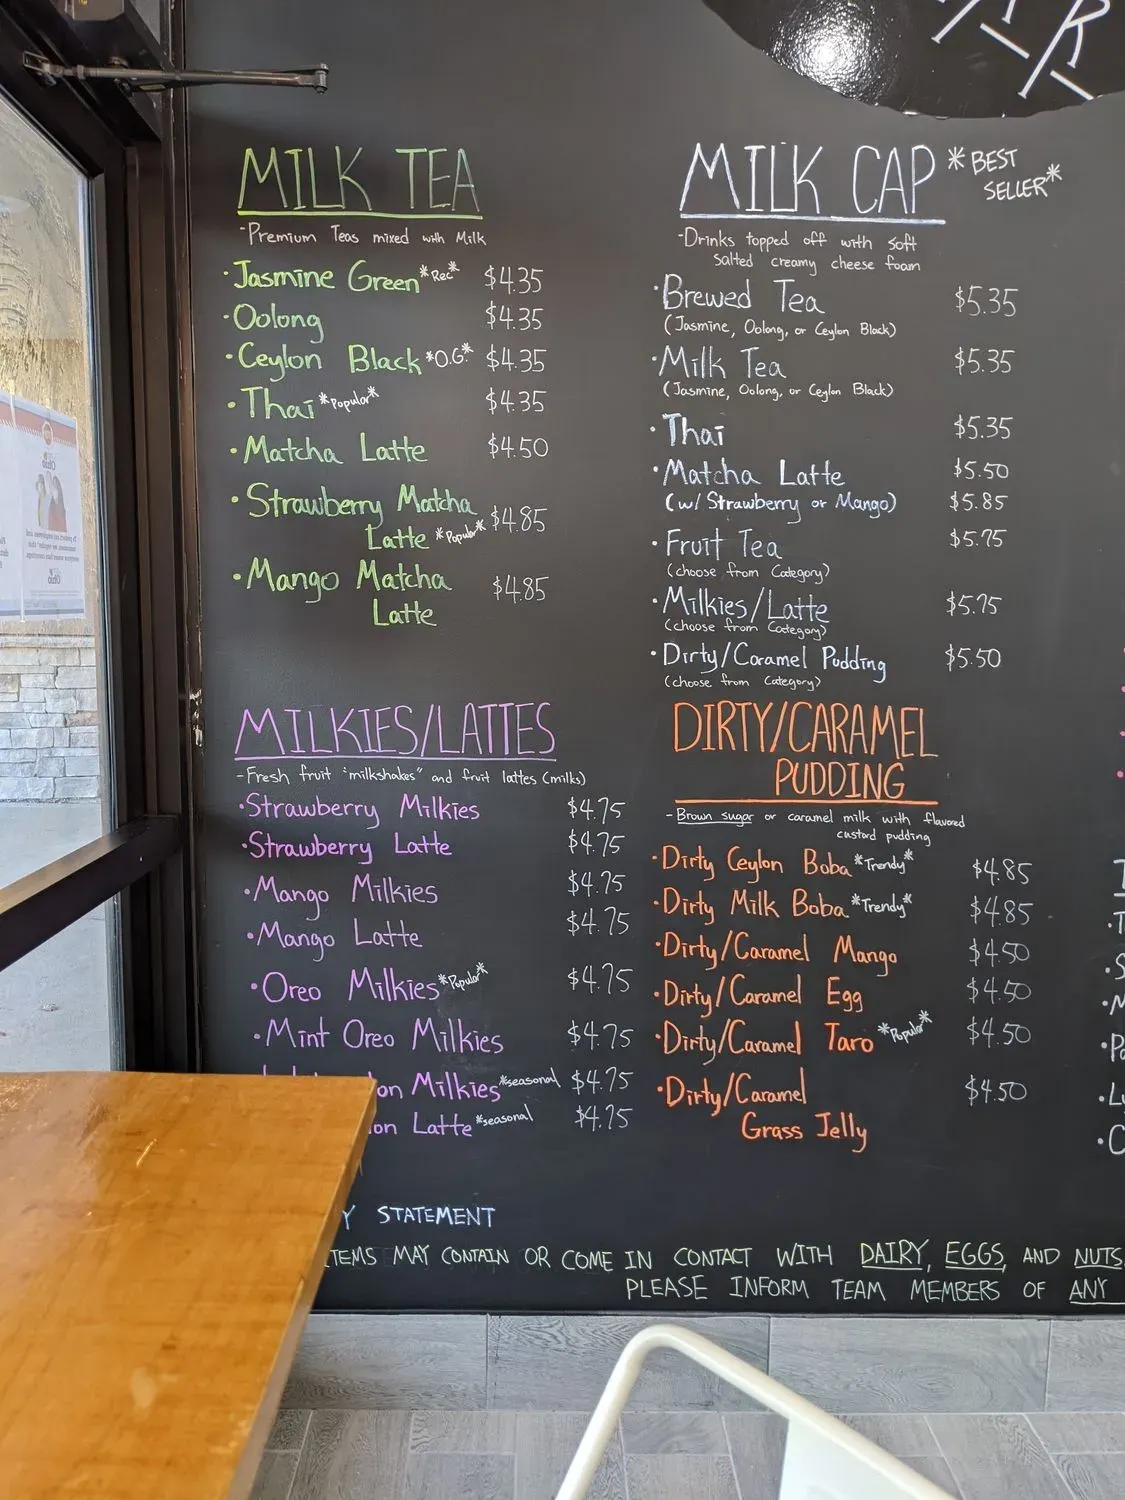 MILK TEA
-Premium Teas mixed with Milk
·Jasmine Green *Rec* $4.35
·Oolong $4.35
·Ceylon Black *O.G.* $4.35
·Thai *Popular* $4.35
·Matcha Latte $4.50
·Strawberry Matcha
Latte *Popular* $4.85
·Mango Matcha $4.85
Latte
MILK CAP *BEST
SELLER*
-Drinks topped off with soft
salted creamy cheese foam
·Brewed Tea $5.35
(Jasmine, Oolong, or Ceylon Black)
·Milk Tea $5.35
(Jasmine, Oolong, or Ceylon Black)
·Thai $5.35
·Matcha Latte $5.50
(w/ Strawberry or Mango) $5.85
·Fruit Tea $5.75
(choose from Category)
·Milkies/Latte $5.75
(choose from Category)
·Dirty/Caramel Pudding $5.50
(choose from Category)
MILKIES/LATTES
-Fresh fruit "milkshakes" and fruit lattes (milks)
·Strawberry Milkies $4.75
·Strawberry Latte $4.75
·Mango Milkies $4.75
·Mango Latte $4.75
·Oreo Milkies *Popular* $4.75
·Mint Oreo Milkies $4.75
on Milkies *seasonal $4.75
on Latte *seasonal $4.75
DIRTY/CARAMEL
PUDDING
-Brown sugar or caramel milk with flavored
custard pudding
·Dirty Ceylon Boba *Trendy* $4.85
·Dirty Milk Boba *Trendy* $4.85
·Dirty/Caramel Mango $4.50
·Dirty/Caramel Egg $4.50
·Dirty/Caramel Taro *Popular* $4.50
·Dirty/Caramel $4.50
Grass Jelly
Y STATEMENT
ITEMS MAY CONTAIN OR COME IN CONTACT WITH DAIRY, EGGS, AND NUTS.
PLEASE INFORM TEAM MEMBERS OF ANY